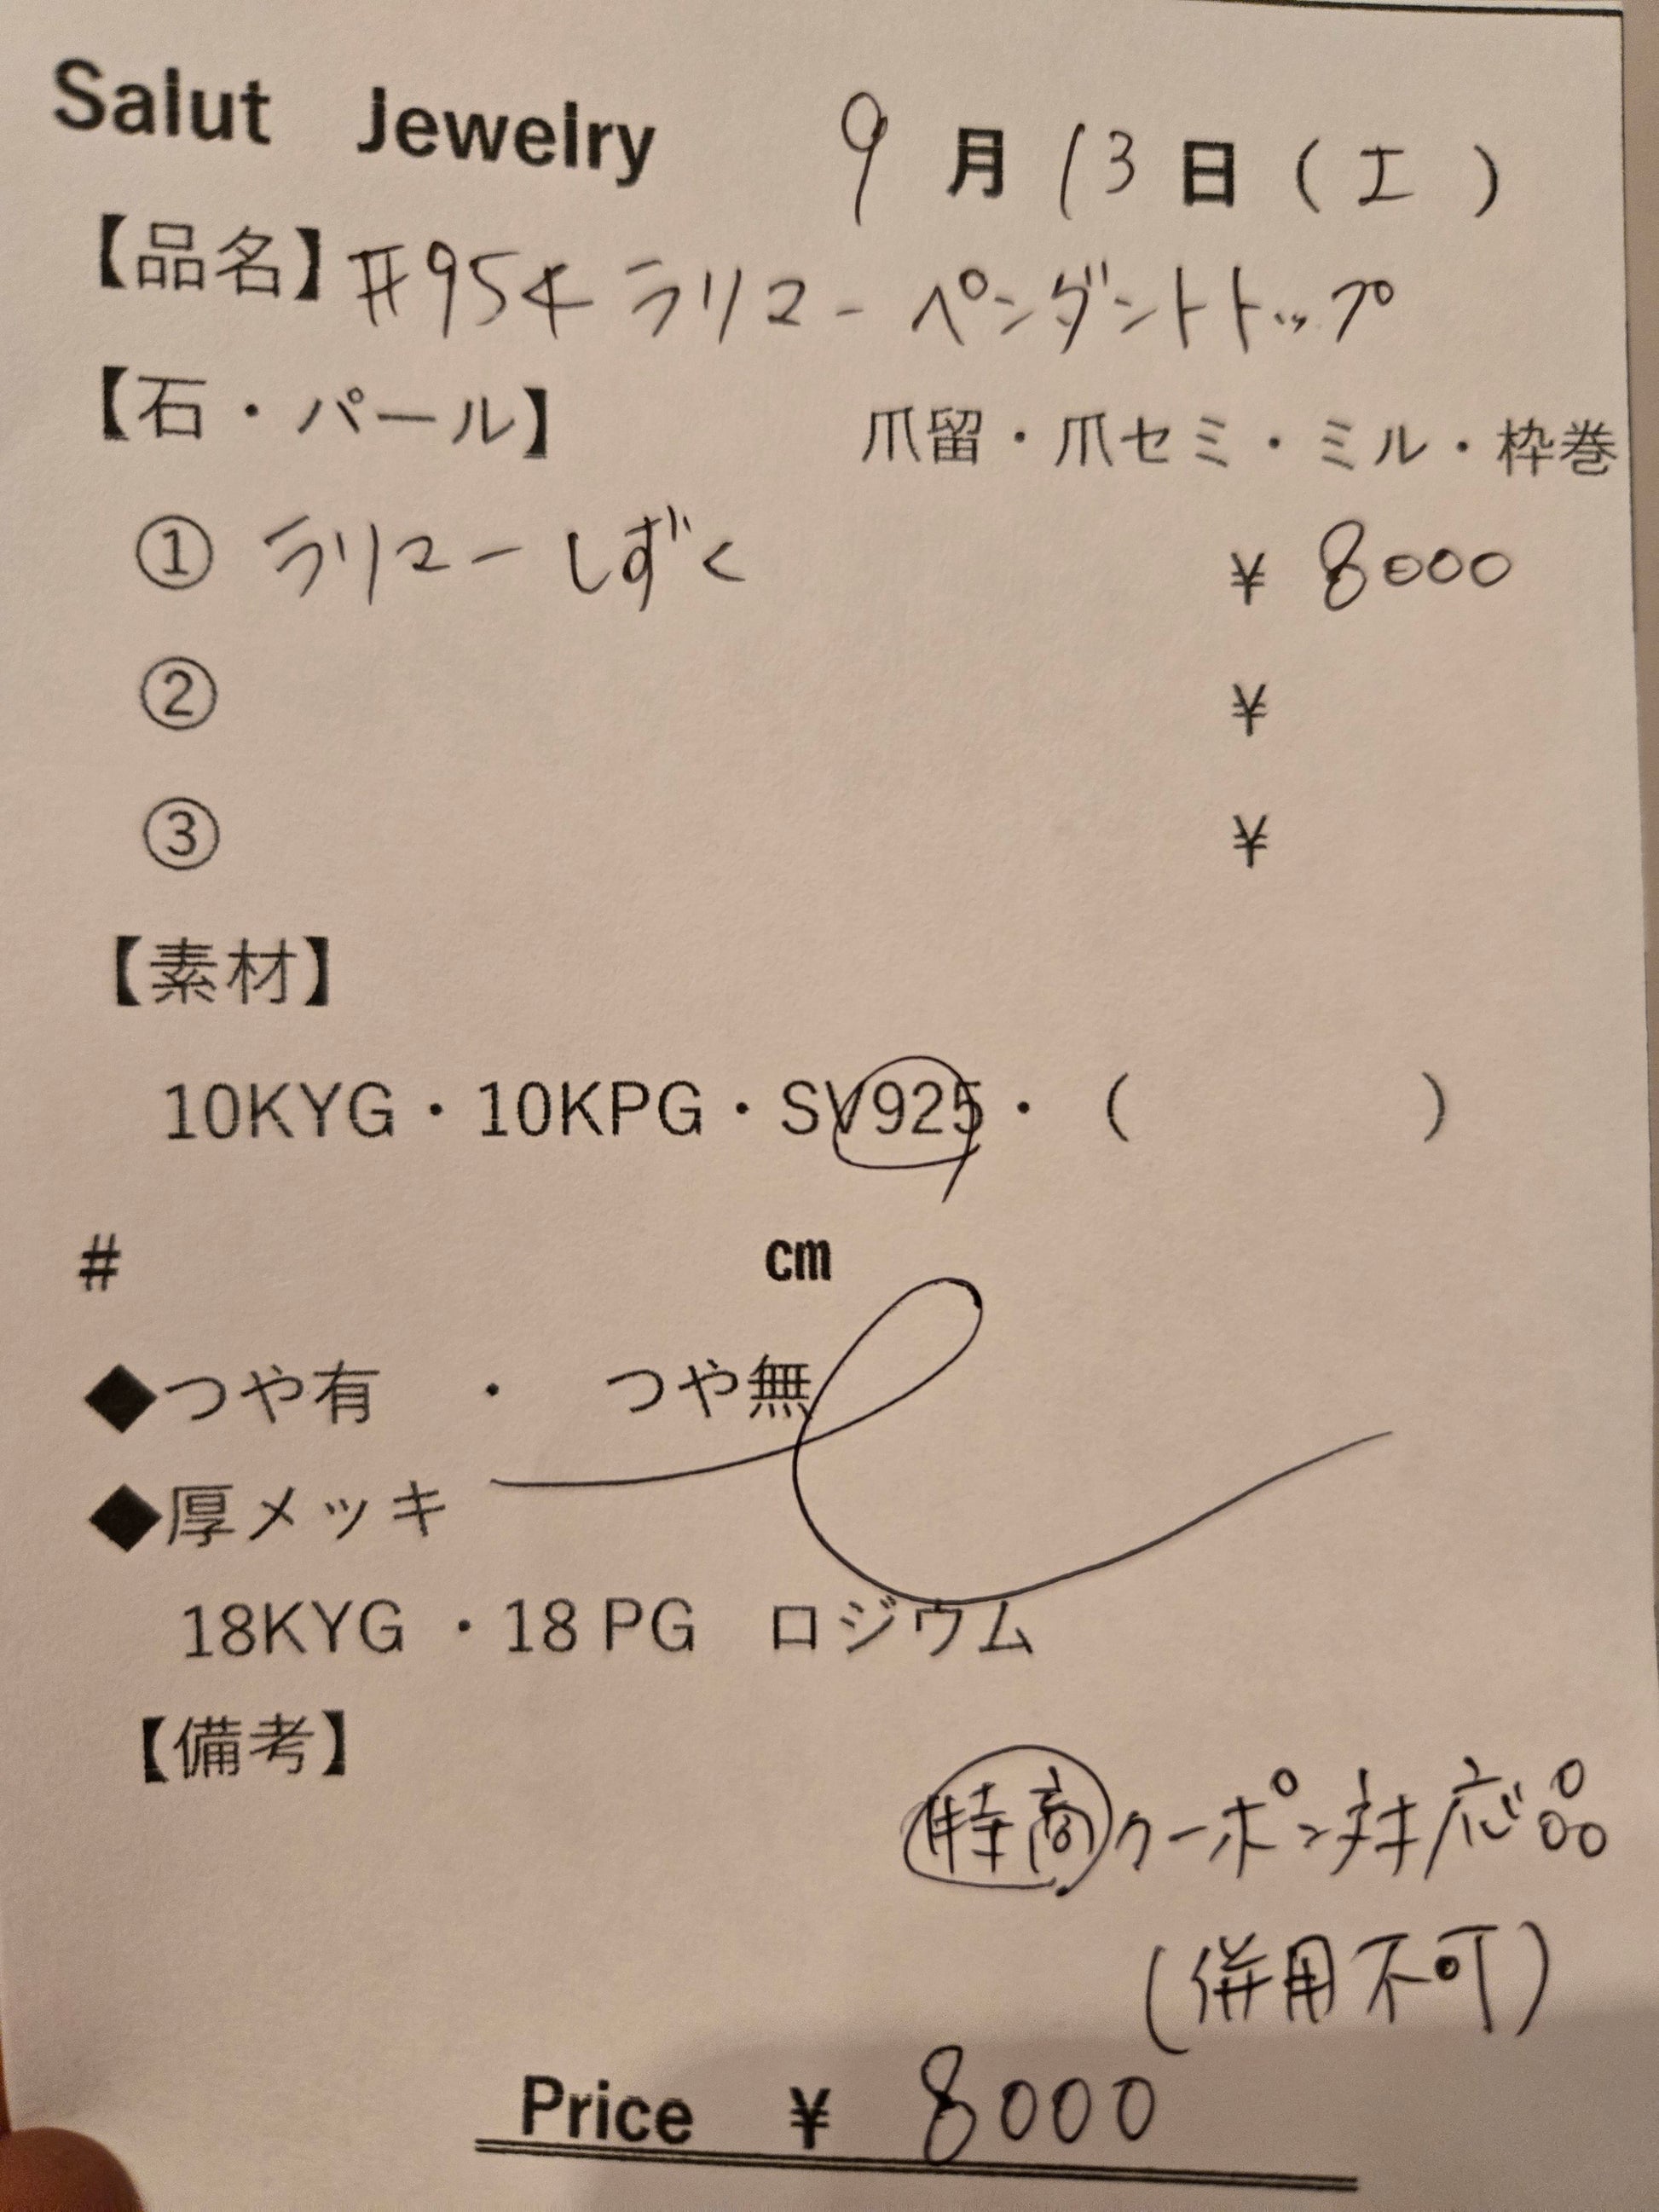 Salut Jewelry 9月13日(土)
【品名】#954 ラリマーペンダントトップ
【石・パール】 爪留・爪セミ・ミル・枠巻
① ラリマーしずく ¥8000
② ¥
③ ¥
【素材】
10KYG・10KPG・SV925・( )
# cm
◆つや有 ・ つや無
◆厚メッキ
18KYG ・18 PG ロジウム
【備考】
特商クーポン対応品
(併用不可)
Price ¥ 8000